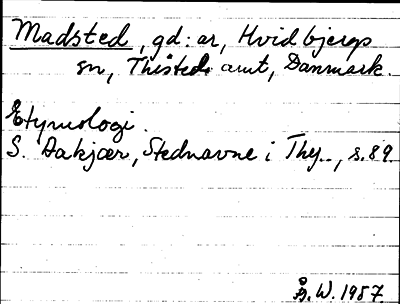 Madsted, gd:ar, Hvidbjergs
sn, Thisteds amt, Danmark.
Etymologi.
S. Aakjær, Stednavne i Thy.., s. 89.
Å. W. 1957.